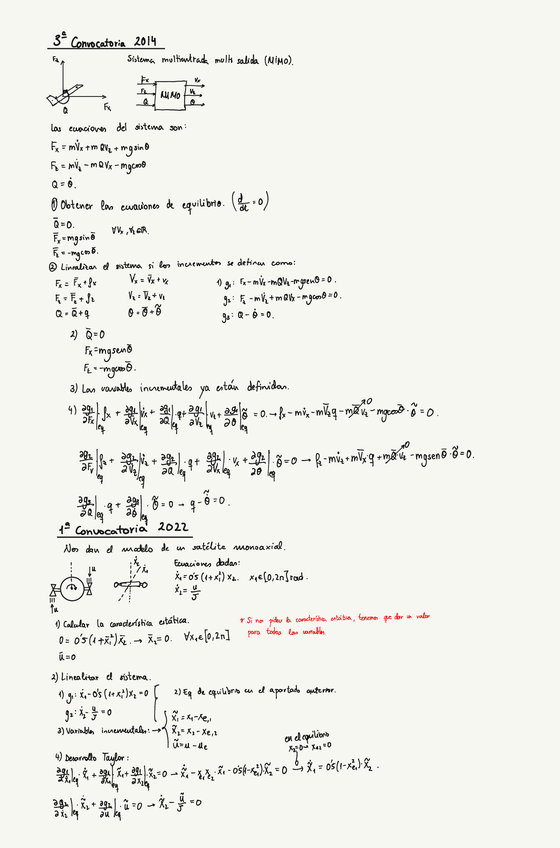 3ª Convocatoria 2014
Sistema multientrada multi salida (MIMO).
Fz
Fx
Q
Fx
Fz
Q
MIMO
Vx
Vz
θ
Las ecuaciones del sistema son:
Fx = mV̇x + mQVz + mgsinθ
Fz = mV̇z - mQVx - mgcosθ
Q = θ̇.
① Obtener las ecuaciones de equilibrio. (d/dt = 0)
Q̄ = 0.
F̄x = mgsinθ̄
F̄z = -mgcosθ̄.
∀Vx, Vz∈R.
② Linealizar el sistema si los incrementos se definen como:
Fx = F̄x + fx Vx = V̄x + vx 1) g1: Fx - mV̇x - mQVz - mgsenθ = 0.
Fz = F̄z + fz Vz = V̄z + vz g2: Fz - mV̇z + mQVx - mgcosθ = 0.
Q = Q̄ + q θ = θ̄ + θ̃ g3: Q - θ̇ = 0.
2) Q̄ = 0
Fx = mgsenθ̄
Fz = -mgcosθ̄.
3) Las variables incrementales ya están definidas.
4) ∂g1/∂Fx|eq · fx + ∂g1/∂V̇x|eq v̇x + ∂g1/∂Q|eq · q + ∂g1/∂Vz|eq vz + ∂g1/∂θ|eq θ̃ = 0. → fx - mv̇x - mV̄z q - mQ̄vz - mgcosθ̄ · θ̃ = 0.
∂g2/∂Fz|eq fz + ∂g2/∂V̇z|eq v̇z + ∂g2/∂Q|eq · q + ∂g2/∂Vx|eq · vx + ∂g2/∂θ|eq · θ̃ = 0 → fz - mv̇z + mV̄x · q + mQ̄vx - mgsenθ̄ · θ̃ = 0.
∂g3/∂Q|eq · q + ∂g3/∂θ̇|eq · θ̃ = 0 → q - θ̃ = 0.
1ª Convocatoria 2022
Nos dan el modelo de un satélite monoaxial.
Ecuaciones dadas:
ẋ1 = 0'5 (1+x1²) x2. x1∈[0,2π] rad.
ẋ2 = u/J
u
u
1) Calcular la característica estática.
0 = 0'5 (1+x̄1²) x̄2. → x̄2 = 0. ∀x1∈[0,2π]
ū = 0
* Si no piden la característica estática, tenemos que dar un valor
para todas las variables.
2) Linealizar el sistema.
1) g1: ẋ1 - 0'5 (1+x1²) x2 = 0 2) Eq de equilibrio en el apartado anterior.
g2: ẋ2 - u/J = 0
3) Variables incrementales: → x̃1 = x1 - xe,1
x̃2 = x2 - xe,2
ũ = u - ue
en el equilibrio
4) Desarrollo Taylor: